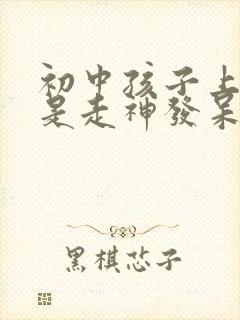 初中孩子上
是走神發呆
黑棋恣子